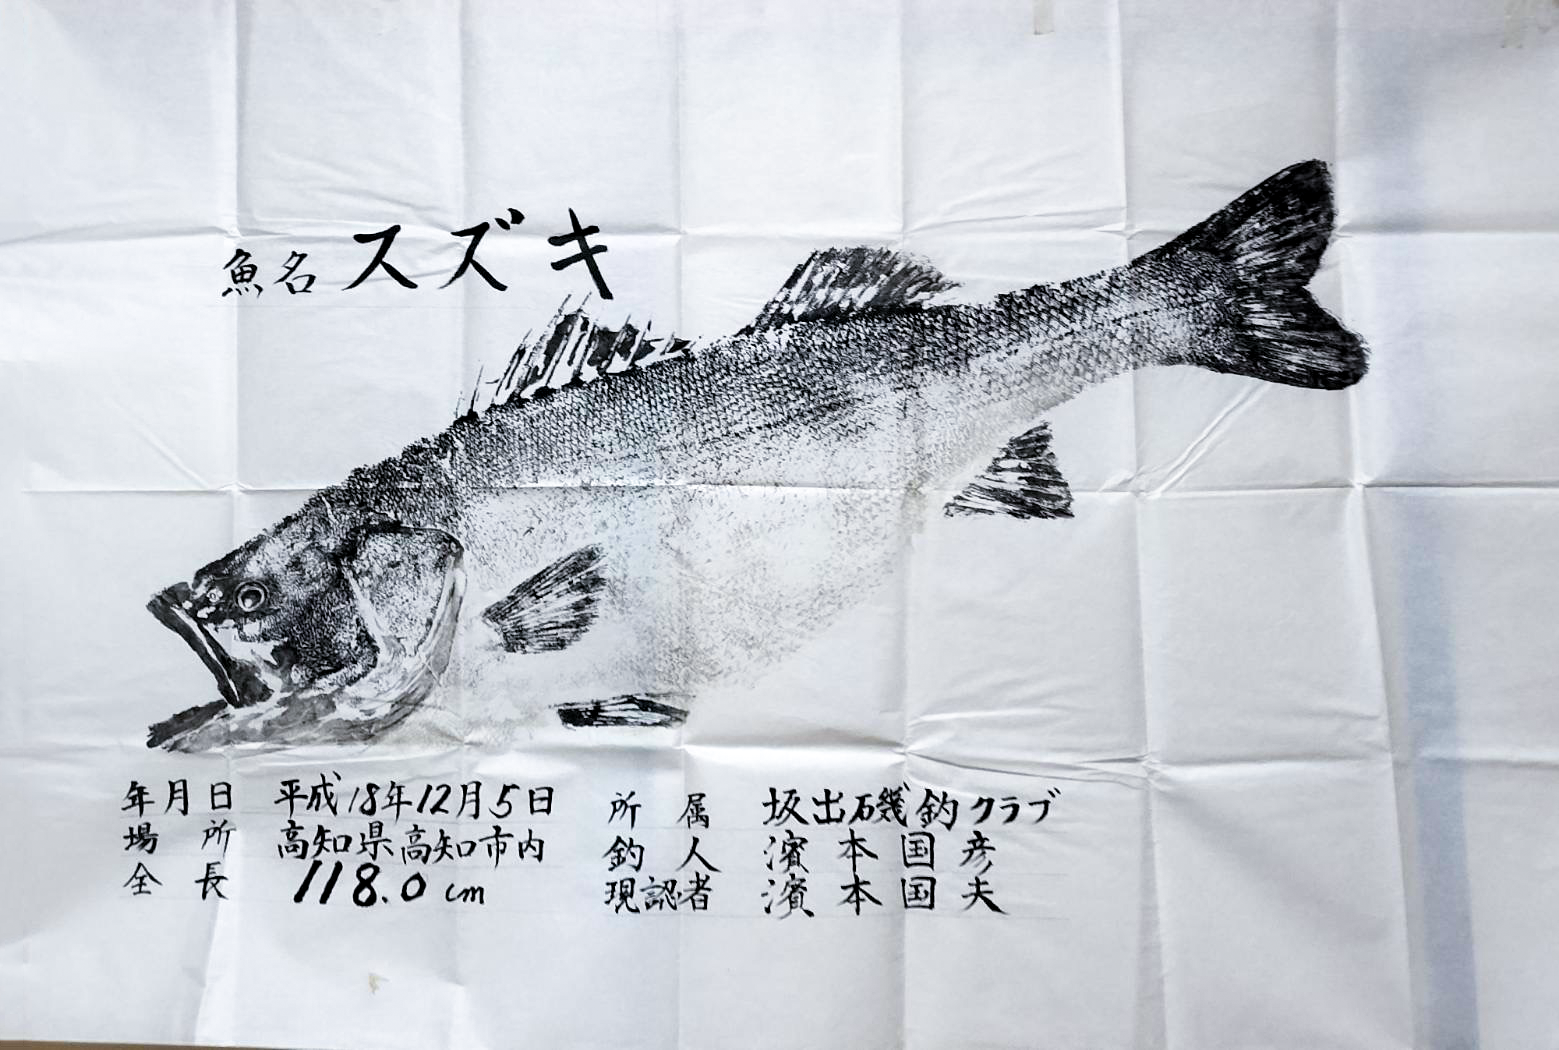 魚名 スズキ
年月日 平成18年12月5日
場所 高知県高知市内
全長 118.0 cm
所属 坂出磯釣クラブ
釣人 濱本国彦
現認者 濱本国夫